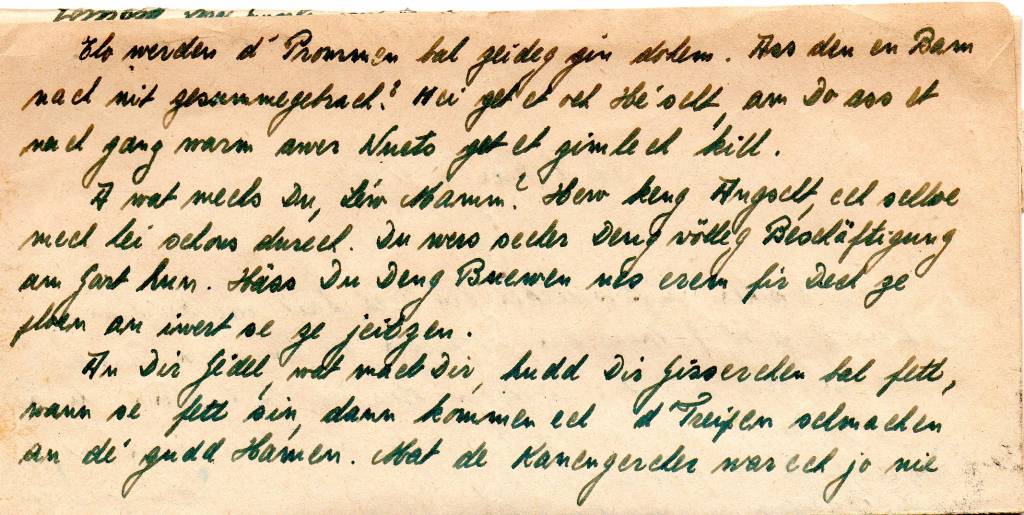 Elo werden d' Prommen bal zeideg gin dohem. Ass den en Bam
nach nit zesummegebrach? Hei get et och Héischt, am Do ass et
nach ganz warm awer Nuets get et zimlech kill.
A wat mechs Du, léiw Mamm? Hew keng Angscht, ech schloe
mech hei schons durech. Du wers secher Deng völleg Beschäftigung
am Gart hun. Häss Du Deng Buewen nës erem fir Dech ze
ploen an iwert se ze jeitzen.
An Dir Gidel, wat mact Dir, hudd Dir Gisserchen bal fett,
wann se fett sin, dann kommen ech d'Treipen schmachen
an dé gudd Hamen. Mat de Kanengercher war ech jo nie